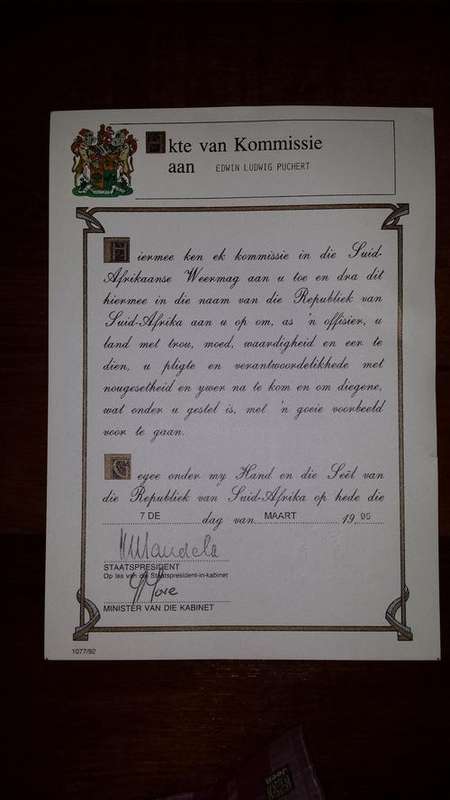 Akte van Kommissie
aan EDWIN LUDWIG PUCHERT
Hiermee ken ek kommissie in die Suid-
Afrikaanse Weermag aan u toe en dra dit
hiermee in die naam van die Republiek van
Suid-Afrika aan u op om, as 'n offisier, u
land met trou, moed, waardigheid en eer te
dien, u pligte en verantwoordelikhede met
nougesetheid en ywer na te kom en om diegene,
wat onder u gestel is, met 'n goeie voorbeeld
voor te gaan.
Gegee onder my Hand en die Seël van
die Republiek van Suid-Afrika op hede die
7 DE dag van MAART 19 95
NMandela
STAATSPRESIDENT
Op las van die Staatspresident-in-kabinet
MINISTER VAN DIE KABINET
1077/92